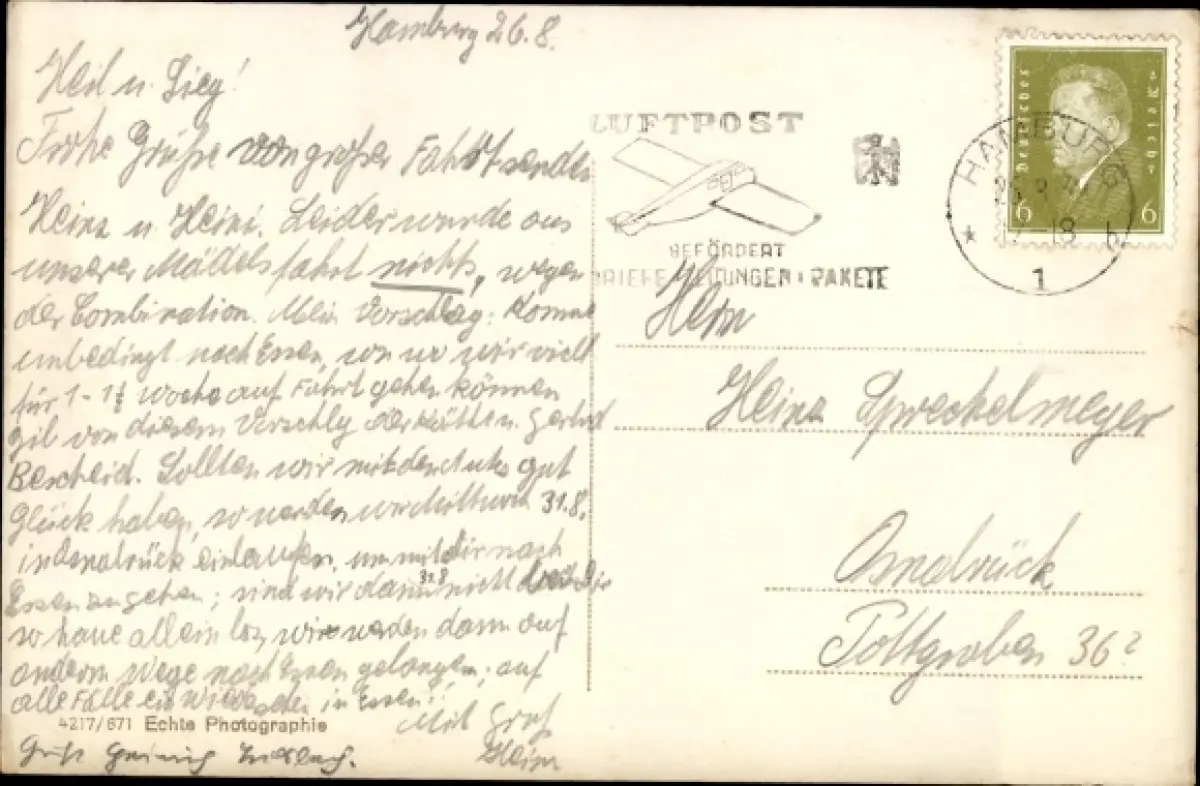 Hamburg 26.8.
Heil u. Sieg!
Frohe Grüße von großer Fahrt senden
Heinz u. Heini. Leider wurde aus
unserer Mädelsfahrt nichts, wegen
der Combination. Mein Vorschlag: Komme
unbedingt nach Essen, von wo wir vielt
für 1 - 1½ Woche auf Fahrt gehen können
gib von diesem Vorschlg der Käthe u. Gertrud
Bescheid. Sollten wir mit den gut
Glück haben, so werden wir 31.8.
in Osnabrück einlaufen, um mit dir nach
Essen zu gehen; sind wir dann 31.8 nicht
so haue allein los, wir werden dann auf
anderm Wege nach Essen gelangen; auf
alle Fälle ein Wiedersehen in Essen!!
Mit Gruß
Heinz
4217/671 Echte Photographie
Gruß Heinrich
LUFTPOST
BEFÖRDERT
BRIEFE ZEITUNGEN PAKETE
HAMBURG
17-18
1
Deutsches Reich
6 6
Herrn
Heinz Spreckelmeyer
Osnabrück
Pottgraben 36?